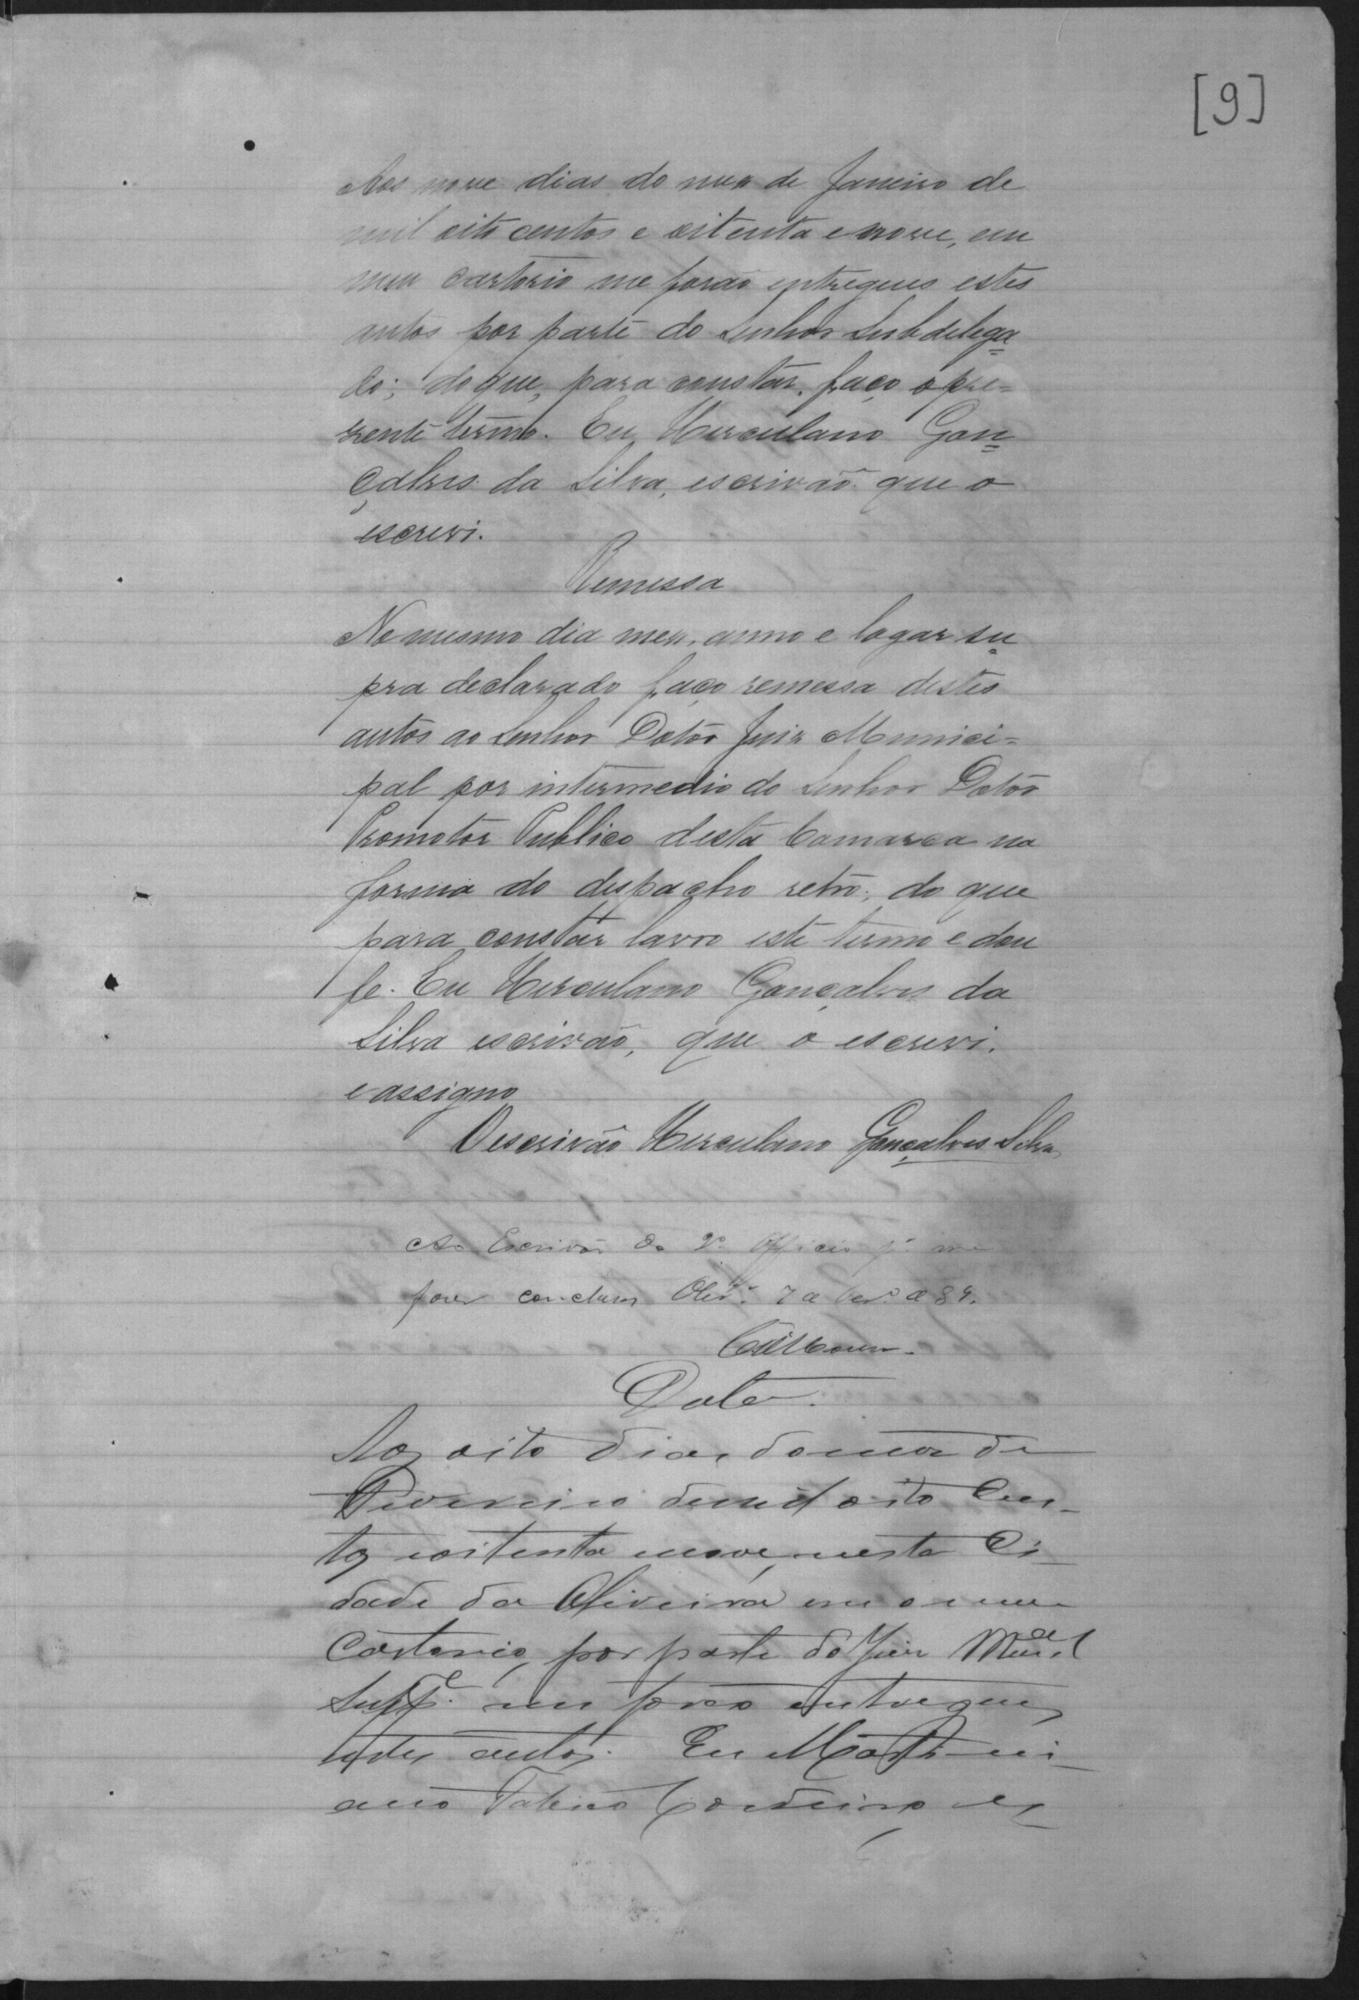 [9]
Aos nove dias do mez de Janeiro de
mil oito centos e oitenta e nove, em
meu cartorio me forão entregues estes
autos por parte do Senhor Subdelega=
do; do que, para constar, faço o pre=
zente termo. Eu Herculano Gon=
çalves da Silva, escrivão que o
escrevi.
Remessa
No mesmo dia mez, anno e logar su=
pra declarado faço remessa destes
autos ao Senhor Dotor Juiz Munici=
pal por intermedio do Senhor Dotor
Promotor Publico desta Comarca na
forma do despacho retro; do que
para constar lavro este termo e dou
fe. Eu Herculano Gonçalves da
Silva escrivão, que o escrevi,
e assigno
O escrivão Herculano Gonçalves Silva
Ao Escrivão do 2º Officio pª me
fazer conclusos Olivª 7 de Fevº de 89.
Data.
Aos oito dias do mez de
Fevereiro de mil oito Cen-
tos e oitenta e nove, nesta Ci-
dade da Oliveira em o meu
Cartorio, por parte do Juiz Mu.al
Supp.e me forão entregues
estes autos. Eu Martini-
ano Cordeiro es